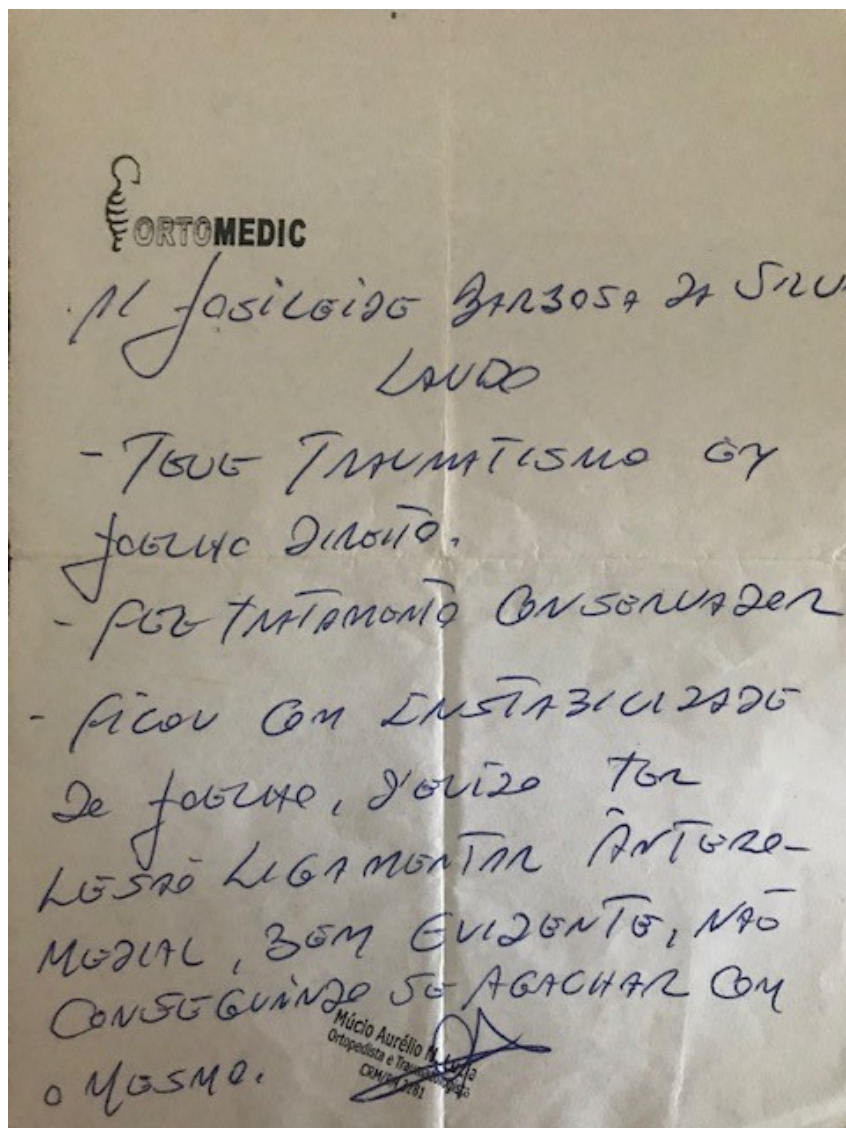 ORTOMEDIC
Josileide Barbosa da Silv
Laudo
- Teve traumatismo em
joelho direito.
- Fez tratamento conservador
- Ficou com instabilidade
de joelho, devido ter
lesão ligamentar ântero-
medial, bem evidente, não
conseguindo se agachar com
o mesmo.
Múcio Aurélio
Ortopedista e Traumatologista